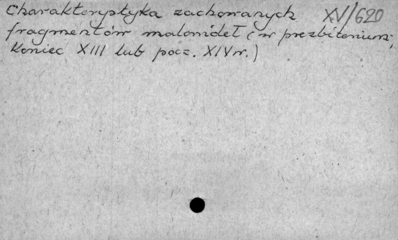 Charakterystyka zachowanych XV/620
fragmentów malowideł (w prezbiterium;
koniec XIII lub pocz. XIV w.)